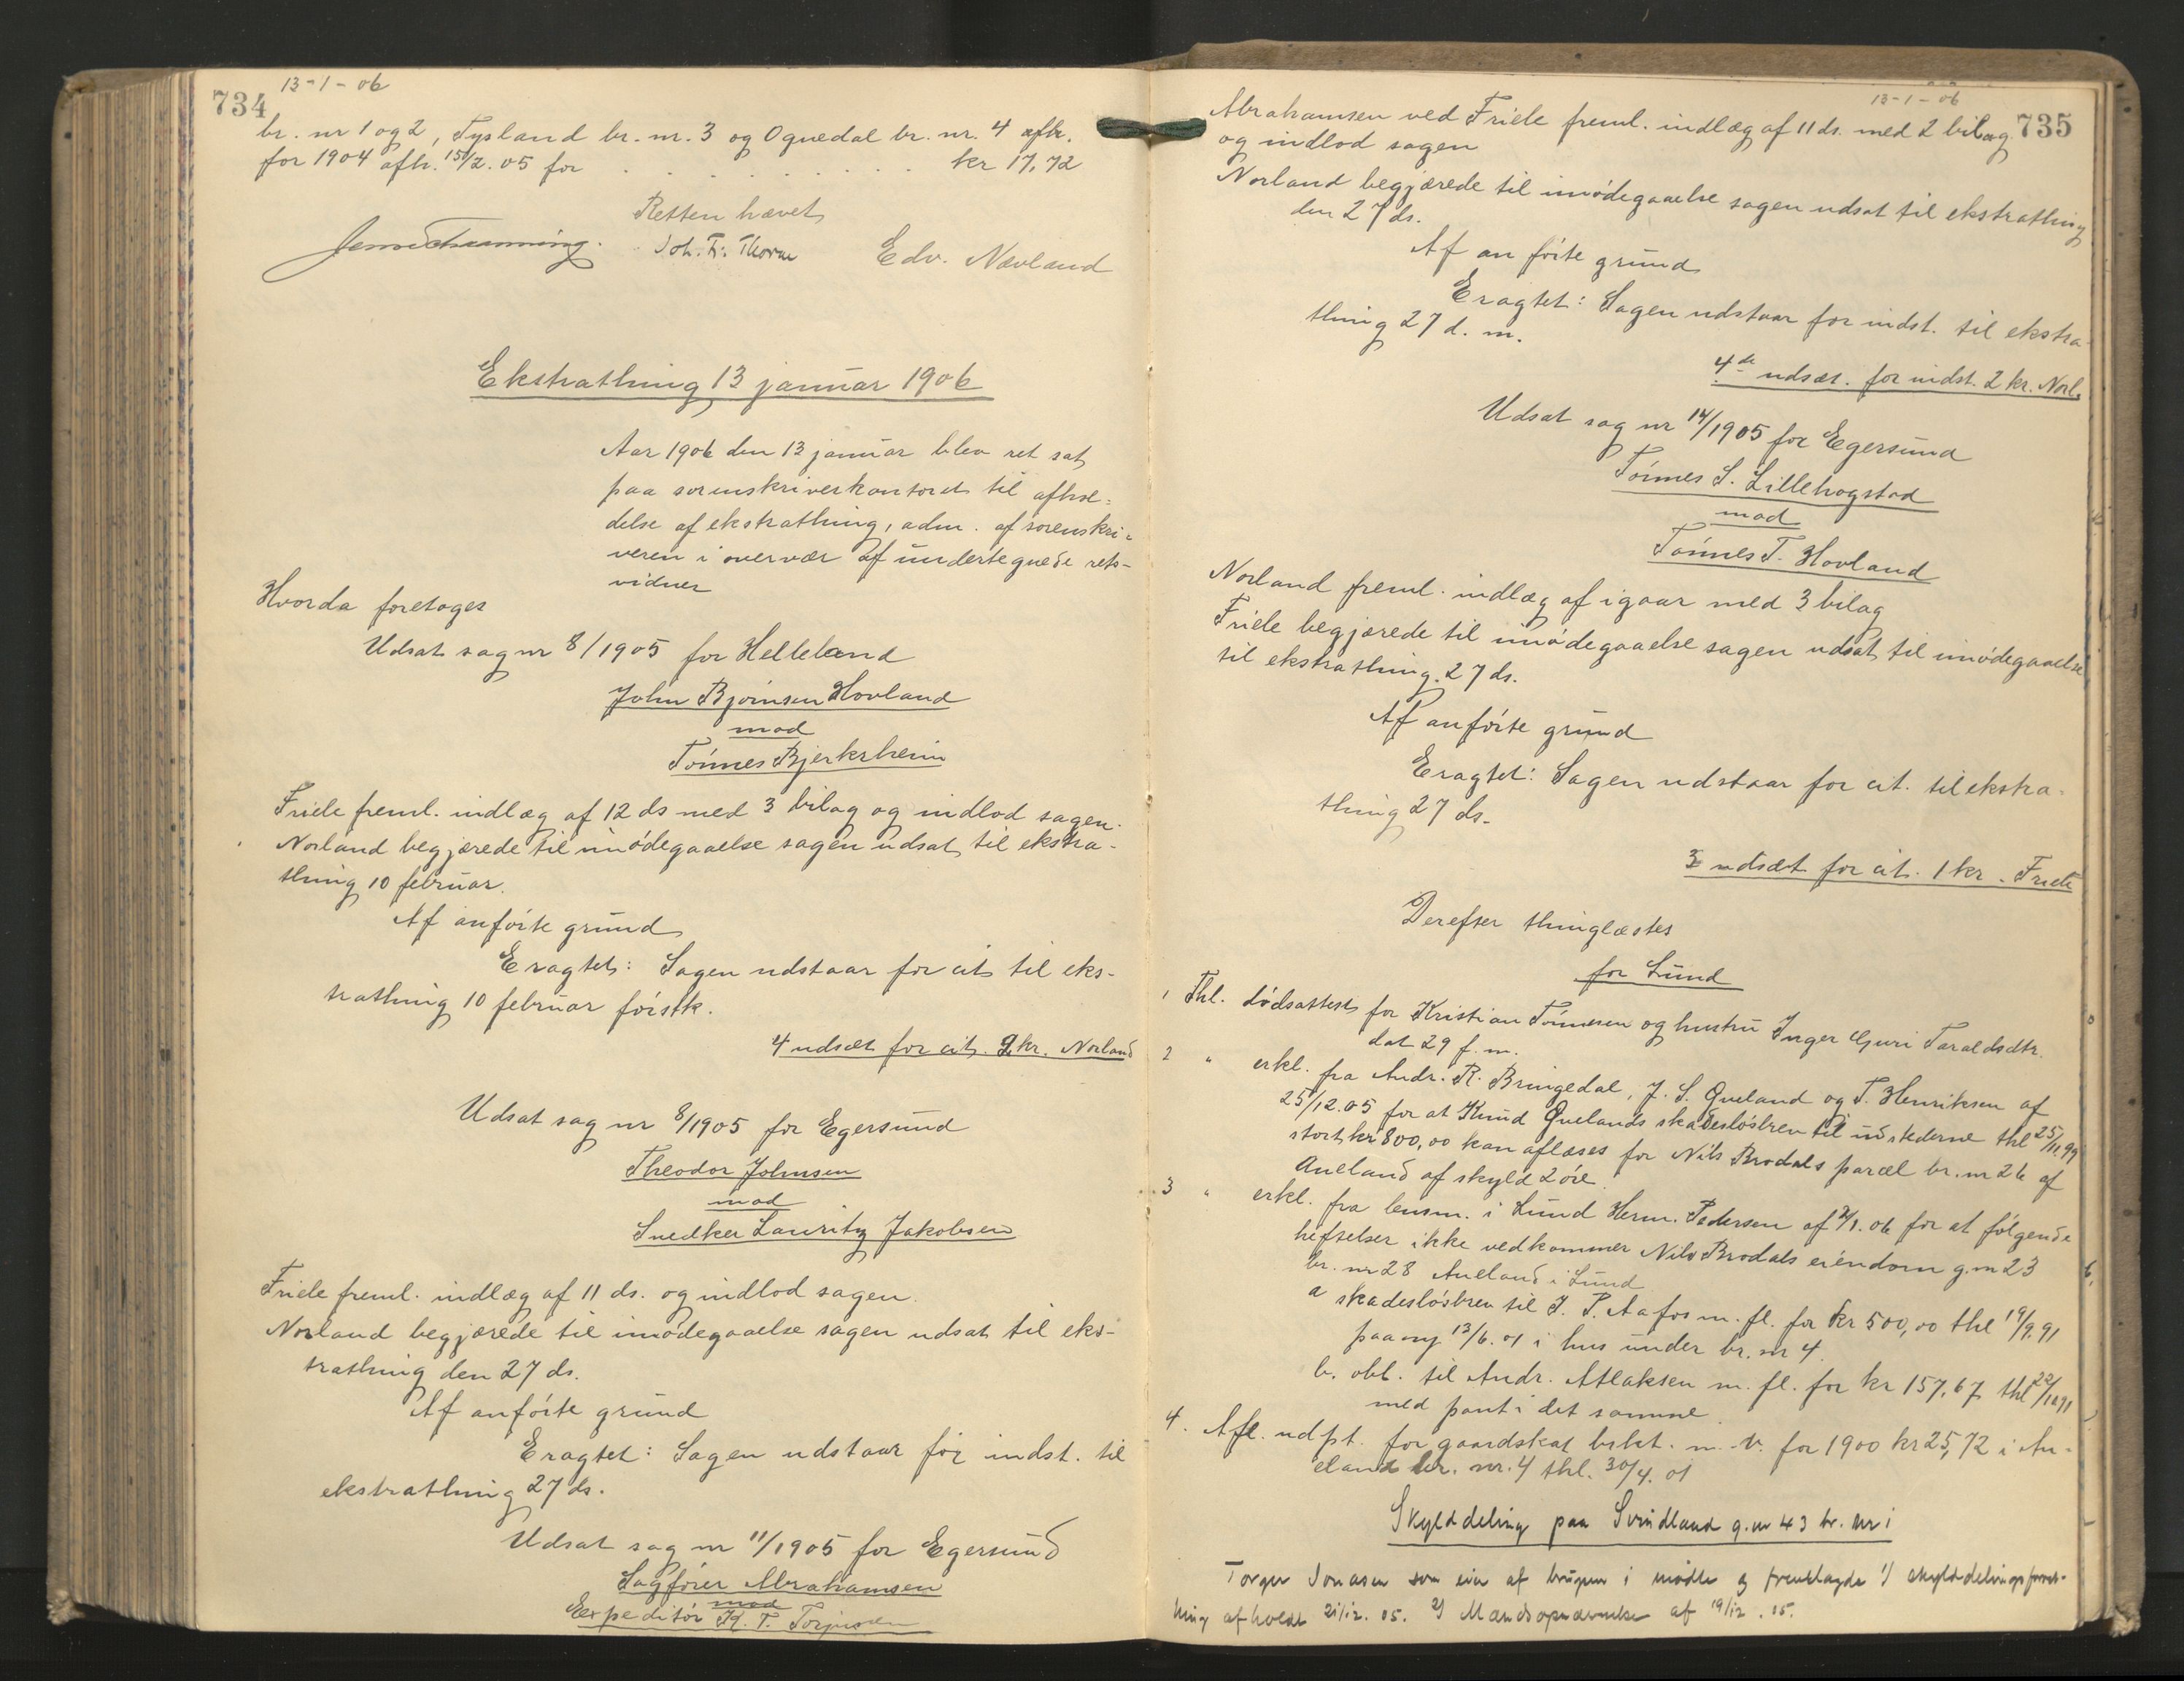 734
13-1-06
br. nr 1 og 2, Tysland br. nr. 3 og Ognedal br. nr. 4 afh.
for 1904 afh. 15/2.05 for . . . . . . . . . kr 17,72
Retten hævet
Joh. F. Thorne Edv. Nævland
Ekstrathing 13 januar 1906
Aar 1906 den 13 januar blev ret sat
paa sorenskriverkontoret til afhol-
delse af ekstrathing, adm. af sorenskri-
veren i overvær af undertegnede rets-
vidner
Hvorda foretoges
Udsat sag nr 8/1905 for Helleland
John Bjørnsen Hovland
mod
Tønnes Bjerkrheim
Friele freml. indlæg af 12 ds med 3 bilag og indlod sagen.
Norland begjærede til imødegaaelse sagen udsat til ekstra-
thing 10 februar.
Af anførte grund
Eragtet: Sagen udstaar for cit. til eks-
trathing 10 februar førstk.
4 udsæt for cit. 2 kr. Norland
Udsat sag nr 8/1905 for Egersund
Theodor Johnsen
mod
Snedker Lauritz Jakobsen
Friele freml. indlæg af 11 ds. og indlod sagen.
Norland begjærede til imødegaaelse sagen udsat til eks-
trathing den 27 ds.
Af anførte grund
Eragtet: Sagen udstaar for indst. til
ekstrathing 27 ds.
Udsat sag nr 11/1905 for Egersund
Sagfører Abrahamsen
mod
Expeditør K. T. Torjusen
13-1-06
735
Abrahamsen ved Friele freml. indlæg af 11 ds. med 2 bilag
og indlod sagen
Norland begjærede til imødegaaelse sagen udsat til ekstrathing
den 27 ds.
Af anførte grund
Eragtet: Sagen udstaar for indst. til ekstra-
thing 27 d. m.
4de udsæt. for indst. 2 kr. Norl.
Udsat sag nr 14/1905 for Egersund
Tønnes S. Lillehogstad
mod
Tønnes T. Hovland
Norland freml. indlæg af igaar med 3 bilag
Friele begjærede til imødegaaelse sagen udsat til imødegaaelse
til ekstrathing. 27 ds.
Af anførte grund
Eragtet: Sagen udstaar for cit. til ekstra-
thing 27 ds.
3 udsæt for cit. 1 kr. Friele
Derefter thinglæstes
for Lund
1 Thl. dødsattest for Kristian Tønnesen og hustru Inger Guri Taraldsdtr.
dat 29 f. m.
2 " erkl. fra Andr. R. Bringedal, J. S. Qveland og T. Henriksen af
25/12.05 for at Knud Qvelands skadesløsbrev til udstederne thl 25/11.99
stort kr 800,00 kan aflæses for Nils Brodals parcel br. nr 26 af
Aueland af skyld 2 øre.
3 " erkl. fra lensm. i Lund Herm. Pedersen af 2/1.06 for at følgende
heftelser ikke vedkommer Nils Brodals eiendom g.nr 23
br. nr 28 Aueland i Lund
a skadesløsbrev til J. P. Aafos m. fl. for kr 500,00 thl 19/9.91
paany 13/6.01 i hus under br. nr 4.
b. obl. til Andr. Atlaksen m. fl. for kr 157,67 thl 22/1291
med pant i det samme.
4. Afl. udpt. for gaardskat m. v. for 1900 kr 25,72 i Au-
eland br. nr. 4 thl. 30/4.01
Skylddeling paa Svindland g.nr 43 br. nr 1
Torger Jonasen som eier af brugenr 1 mødte og fremlagde 1) skylddelingsforret-
ning afholdt 21/12.05. 2) Mændsopnævnelse af 19/12.05.